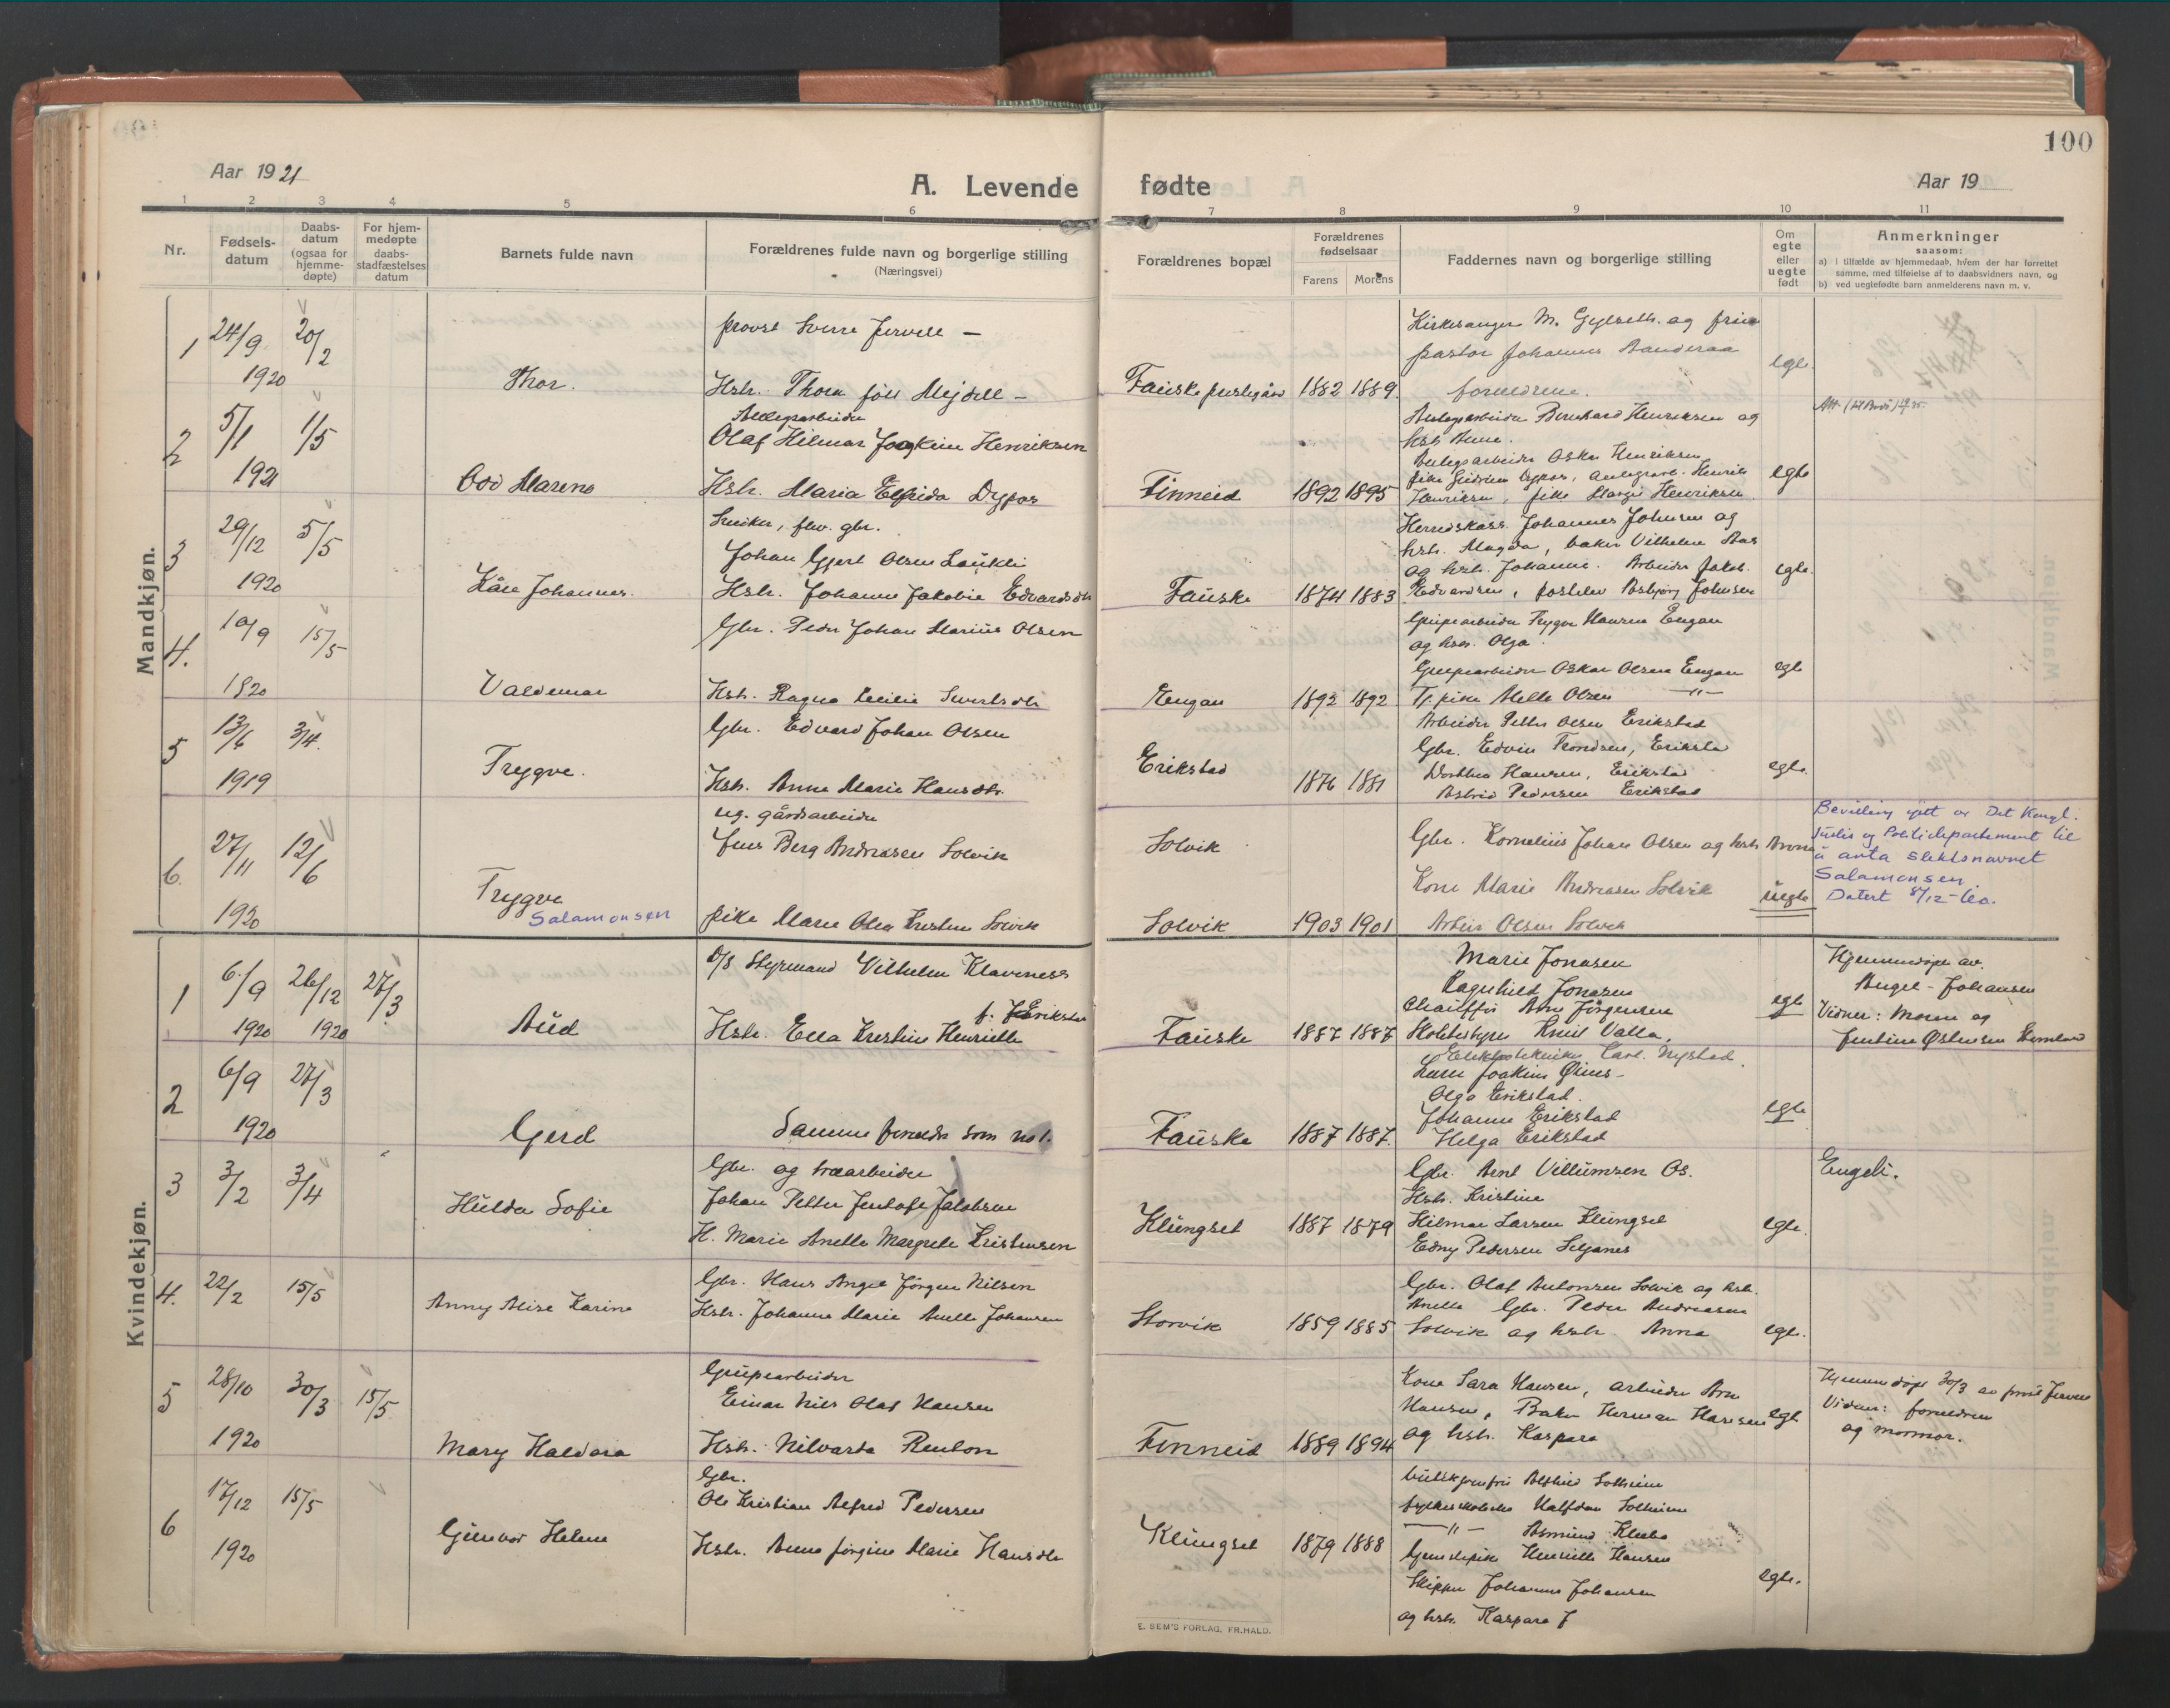 100
Aar 1921
A. Levende fødte
Aar 19
1 2 3 4 5 6 7 8 9 10 11
Nr.
Fødselsdatum
Daabsdatum (ogsaa for hjemmedøpte)
For hjemmedøpte daabsstadfæstelses datum
Barnets fulde navn
Forældrenes fulde navn og borgerlige stilling
(Næringsvei)
Forældrenes bopæl
Forældrenes fødselsaar
Farens Morens
Faddernes navn og borgerlige stilling
Om egte eller uegte født
Anmerkninger
saasom:
a) i tilfælde av hjemmedaab, hvem der har forrettet
samme, med tilføielse af to daabsvidners navn, og
b) ved uegtefødte barn anmelderens navn m. v.
Mandkjøn.
1 24/9 1920 20/2
Thor.
provst Sverre Jervell —
Hstr. Thora født Mejdell —
Fauske prestegård 1882 1889
Kirkesanger M. Gylseth og frue
pastor Johannes Aanderaa
foreldrene.
egte.
2 5/1 1921 1/5
Odd Mareno
Anlegsarbeider
Olaf Hilmar Joakim Henriksen
Hstr. Maria Elfrida Dypos
Finneid 1892 1895
Anlegsarbeider Bernhard Henriksen og
hstr Anne.
Anlegsarbeider Oskar Henriksen
Henriksen, pike Margit Henriksen
egte
3 29/12 1920 5/5
Kåre Johannes.
Snedker, fhv. gbr.
Johan Gjert Olsen Laukli
Hstr. Johanne Jakobie Edvardsdtr
Fauske 1874 1883
Herredskass. Johannes Johnsen og
hstr. Magda, baker Vilhelm Aas
og hstr. Johanne. Arbeider Jakob
Edvardsen, postelev Asbjørg Johnsen
egte.
4. 10/9 1920 15/5
Valdemar
Gbr. Peder Johan Marius Olsen
Hstr. Ragna Cecilie Sivertsdtr
Engan 1893 1892
Grupearbeider Trygve Hansen Engan
og hstr. Olga
Grupearbeider Oskar Olsen Engan
Tj. pike Mella Olsen —"—
egte
5 13/6 1919 3/4.
Trygve.
Gbr. Edvard Johan Olsen
Hstr. Anna Marie Hansdtr.
Erikstad 1876 1881
Arbeider Petter Olsen Erikstad
Gbr. Edvin Trondsen, Erikstad
Dorthea Hansen, Erikstad
Astrid Pedersen Erikstad
egte.
6. 27/11 1920 12/6
Trygve
Salamonsen
ug. gårdsarbeider
Jens Berg Andreasen Solvik
pike Marie Olea Kristine Solvik
Solvik
Solvik 1903 1901
Gbr. Kornelius Johan Olsen og hstr Anna
Kone Marie Andreasen Solvik
Arthur Olsen Solvik
uegte
Bevilling gitt av Det Kongl.
Justis og Politidepartement til
å anta slektsnavnet
Salamonsen
Datert 8/12-60.
Kvindekjøn.
1 6/9 1920 26/12 1920 27/3
Aud
D/S Styrmand Vilhelm Klaveness
Hstr. Ella Kristine Henriette
f. Erikstad
Fauske 1887 1887
Marie Jonasen
Ragnhild Jonasen
Chauffør Arne Jörgensen
Knut Valla,
Elektrotekniker Carl Nystad
egte
Hjemmedøpt av.
Angel-Johansen
Vidner: Moren og
Jentine Østensen
2 6/9 1920 27/3
Gerd
Samme foreldre som no 1.
Fauske 1887 1887.
Joakim
Olga Erikstad.
Johanne Erikstad
Helga Erikstad
egte
3 3/2 3/4
Hulda Sofie
Gbr. og træarbeider
Johan Petter Jentoft Jakobsen
H. Marie Anette Margrete Kristensen
Klungset 1887 1879
Gbr. Arnt Villumsen Os.
Hstr. Kristine
Hilmar Larsen Klungset
Edny Pedersen Seljanes
egte.
Engeli.
4. 22/2 15/5
Anny Alise Karine
Gbr. Hans Angel Jörgen Nilsen
Hstr. Johanna Marie Anette Johansen
Storvik 1859 1885
Gbr. Olaf Antonsen Solvik og hstr.
Anette Gbr. Peder Andreasen
Solvik og hstr. Anna
egte.
5 28/10 1920 30/3 15/5
Mary Haldora
Grupearbeider
Einar Nils Olaf Hansen
Hstr. Nilvarda Renton
Finneid 1889 1894
Kone Sara Hansen, arbeider Arne
Hansen, Baker Herman Hansen
og hstr. Kaspara
egte
Hjemmedøpt 30/3 av prost Jervell
Vidner: foreldrene
og mormor.
6 17/12 1920 15/5
Gunvor Helene
Gbr.
Ole Kristian Alfred Pedersen
Hstr. Anna Jörgine Marie Hansdtr
Klungset 1879 1888
Butikjomfru Solheim
Halfdan Solheim
—"— Asmund Kleebo
Henriette Hansen
Skipper Johannes Johansen
og hstr. Kaspara J
egte.
E. SEM'S FORLAG, FR.HALD.